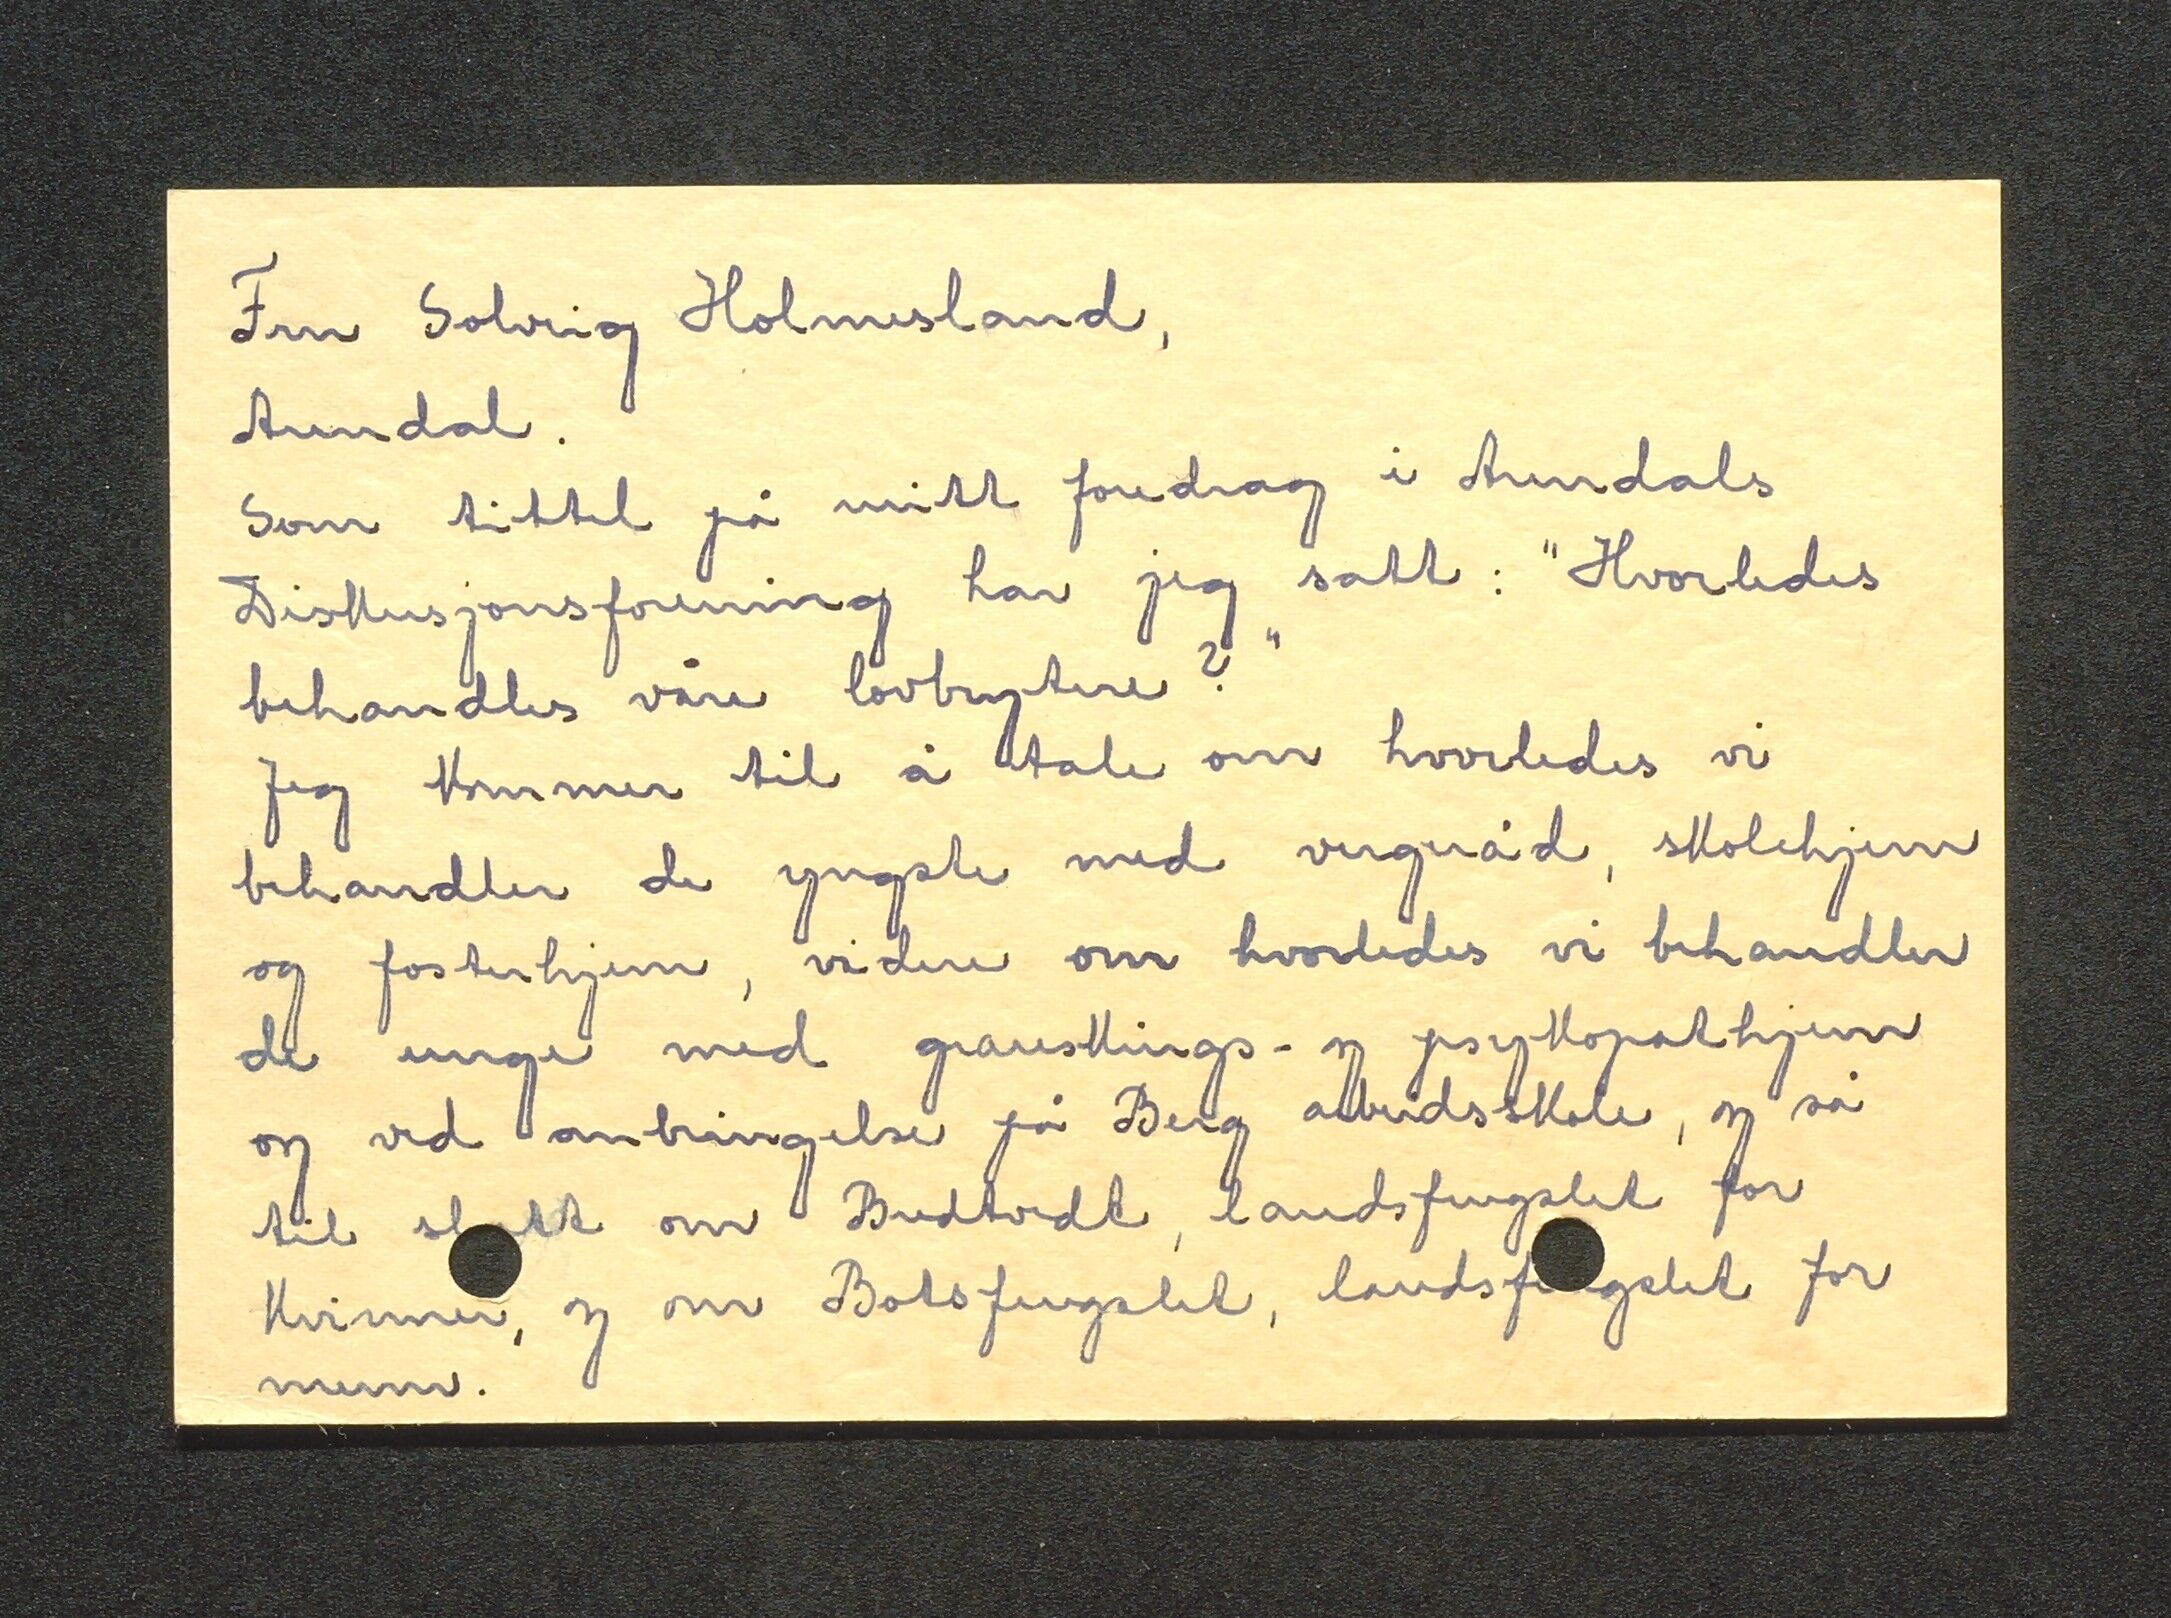 Fru Solveig Holmesland,
Arendal.
Som tittel på mitt foredrag i Arendals
Diskusjonsforening har jeg satt: "Hvorledes
behandles våre lovbrytere?"
Jeg kommer til å tale om hvorledes vi
behandler de yngste med vergeråd, skolehjem
og fosterhjem, videre om hvorledes vi behandler
de unge med granskings- og psykopathjem
og ved anbringelse på Berg arbeidsskole, og så
til slutt om Bredtvedt, landsfengslet for
kvinner, og om Botsfengslet, landsfengslet for
menn.